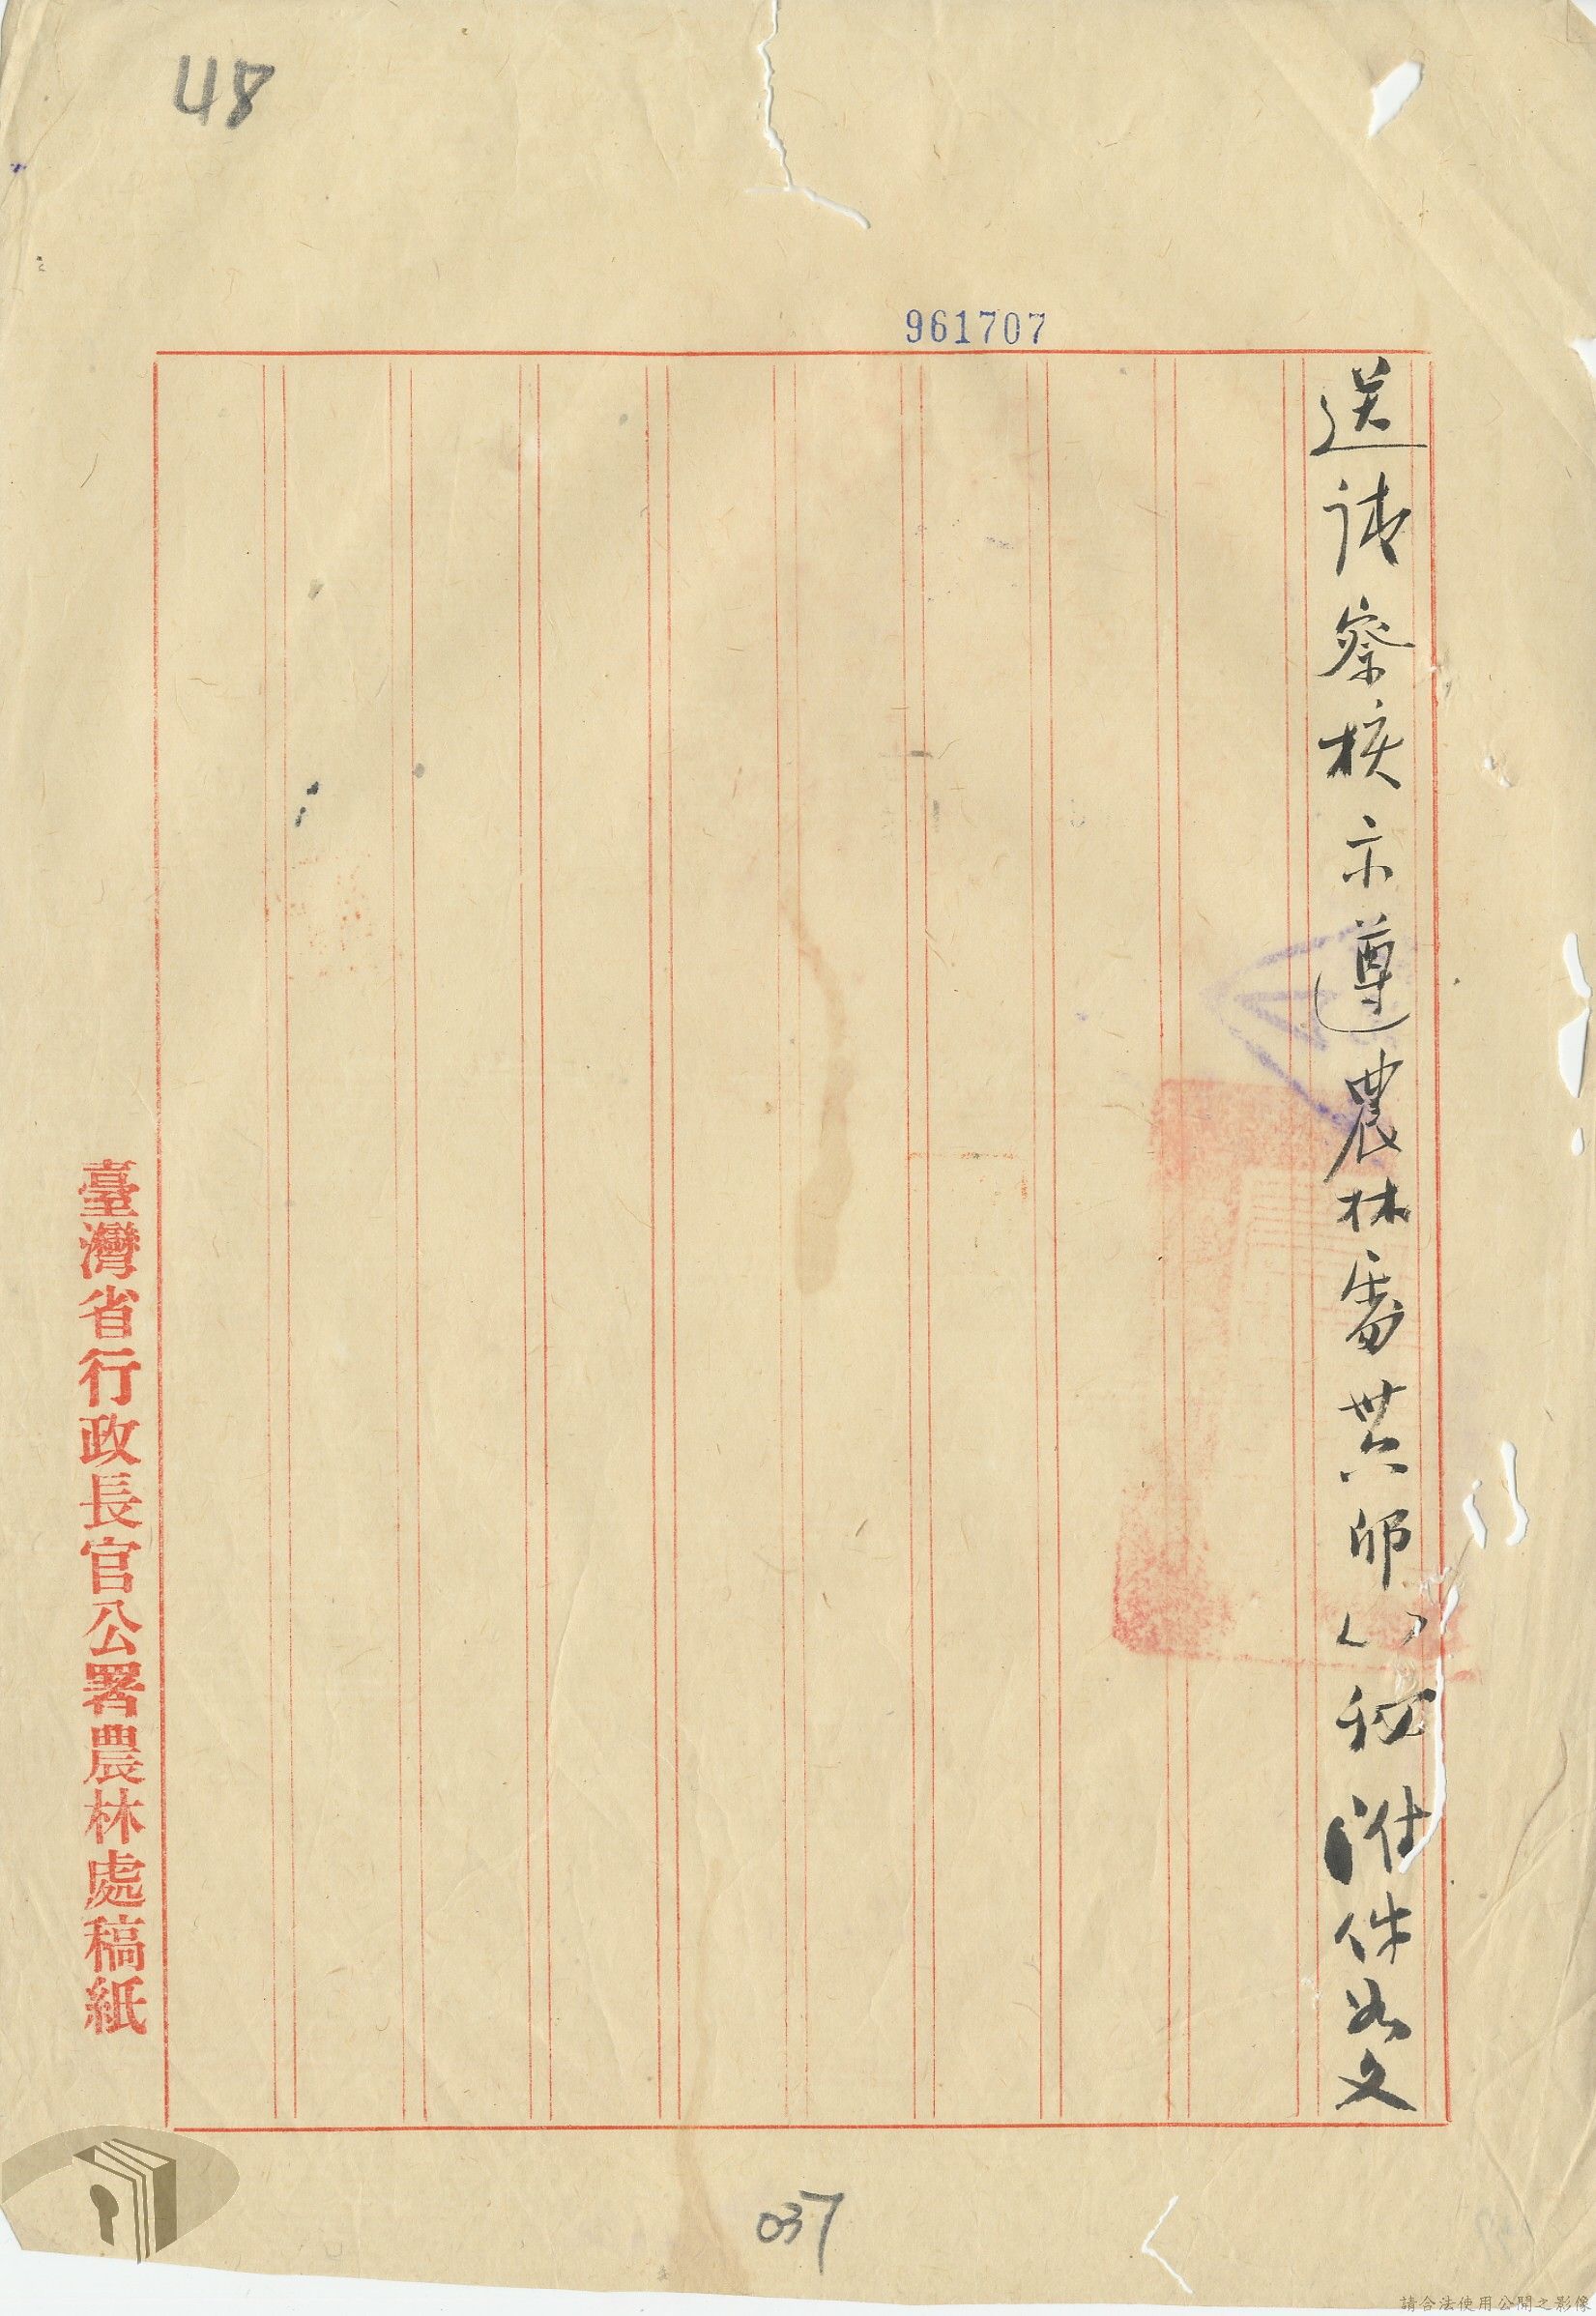 48
961707
送請察核示遵農林處卅六卯 秘附件如文
臺灣省行政長官公署農林處稿紙
037
請合法使用公開之影像